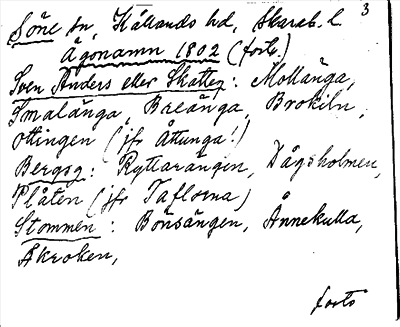 3
Söne sn, Kållands hd, Skarab. l
Ägonamn 1802 (forts.)
Sven Anders eller Skatteg: Mollänga,
Smalänga, Breänga, Brokiln,
Ottingen (jfr Åttunga!)
Bergsg: Ryttarängen, Dågsholmen,
Plåten (jfr Taflorna)
Stommen: Bönsängen, Ånnekulla,
Åkroken,
forts